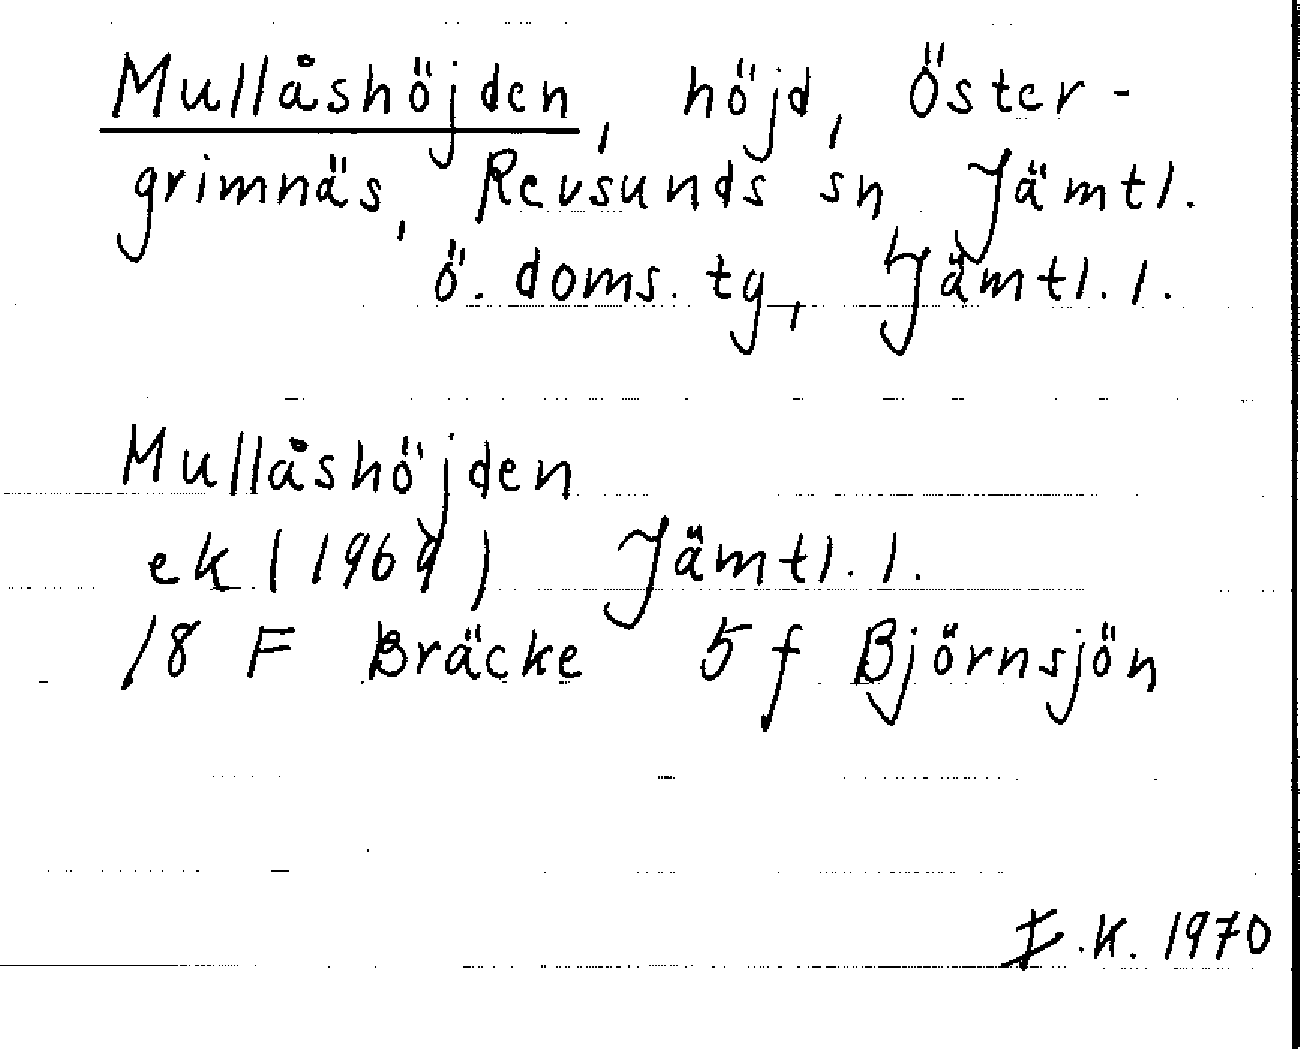 Mullåshöjden, höjd, Öster-
grimnäs, Revsunds sn Jämtl.
ö. doms. tg, Jämtl. l.
Mullåshöjden
ek (1969) Jämtl. l.
18 F Bräcke 5 f Björnsjön
E.K. 1970